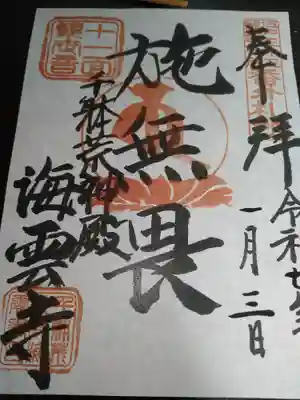 奉拝
令和七年
一月三日
施無畏
千躰荒神殿
海雲寺
十一面
観世音